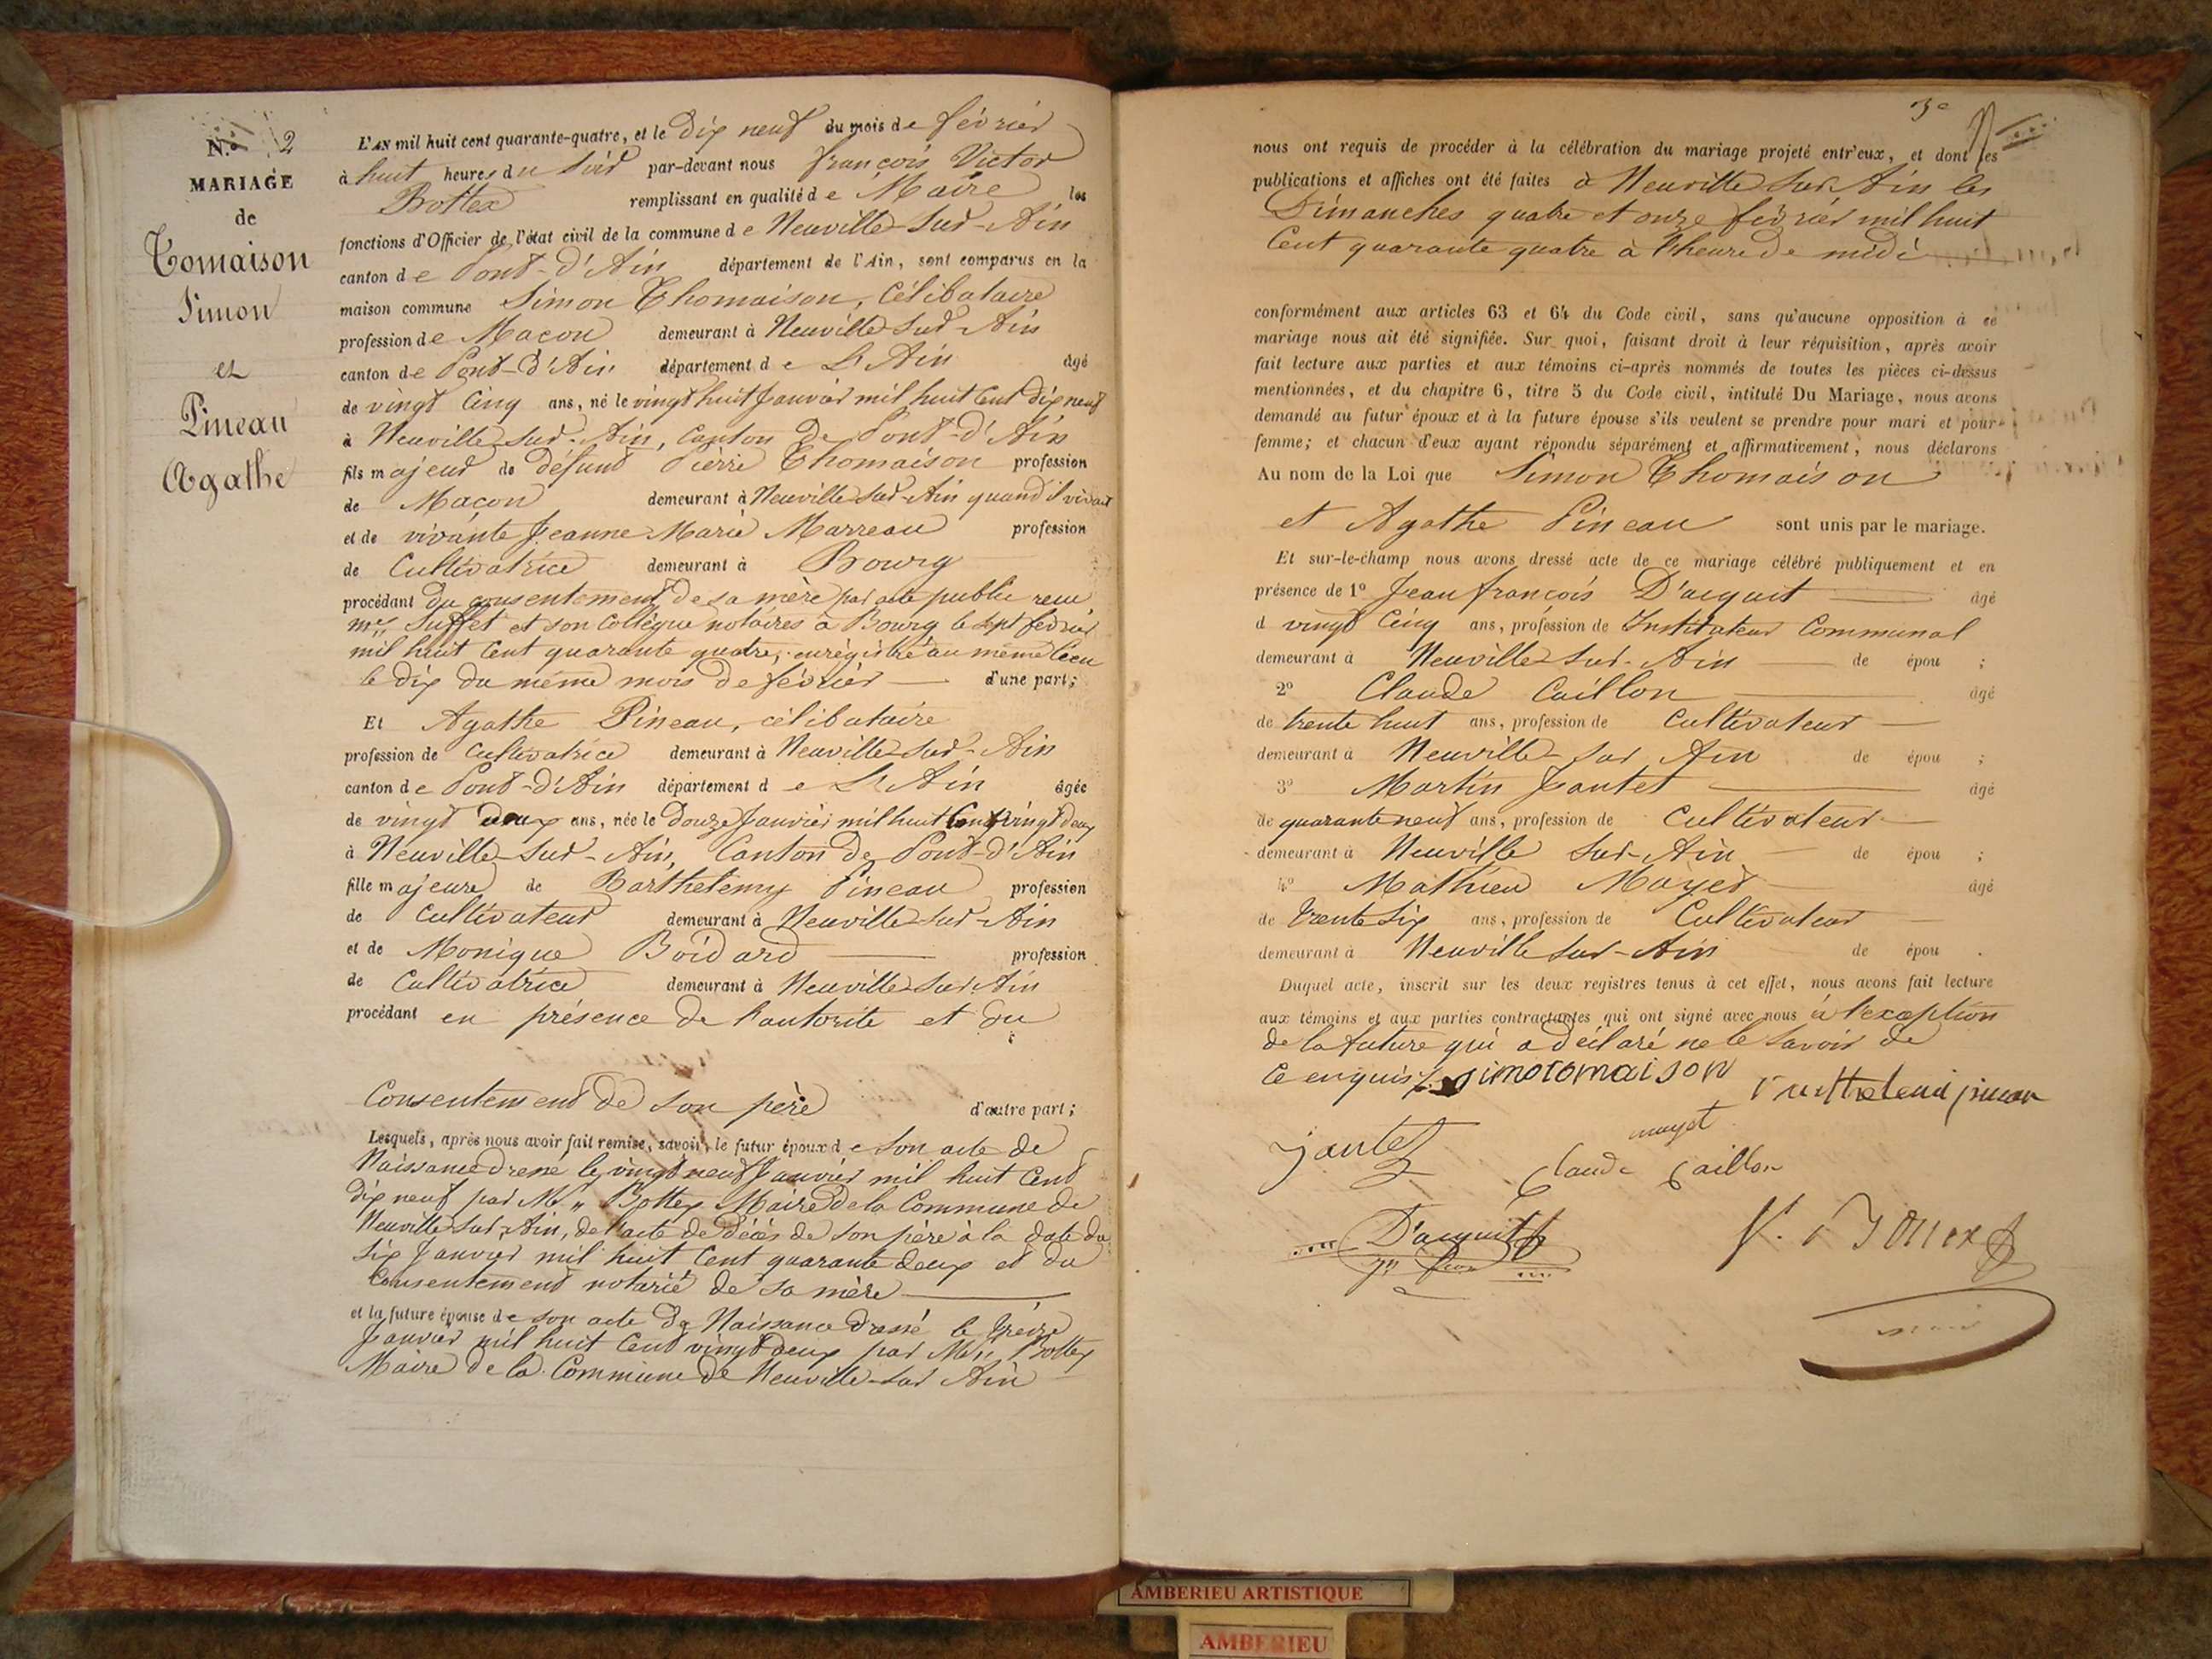 N.º 2
MARIAGE
de
Tomaison
Simon
et
Pineau
Agathe
L'AN mil huit cent quarante-quatre, et le dix neuf du mois de février
à huit heures du soir par-devant nous françois Victor
Bottex remplissant en qualité de Maire les
fonctions d'Officier de l'état civil de la commune de Neuville-sur-Ain
canton de Pont-d'Ain département de l'Ain, sont comparus en la
maison commune Simon Thomaison, Célibataire
profession de Macon demeurant à Neuville-sur-Ain
canton de Pont-d'Ain département de L'Ain âgé
de vingt Cinq ans, né le vingt huit Janvier mil huit Cent dix neuf
à Neuville-sur-Ain, Canton de Pont-d'Ain
fils majeur de défunt Pierre Thomaison profession
de Macon demeurant à Neuville-sur-Ain quand il vivait
et de vivante Jeanne Marie Marreau profession
de Cultivatrice demeurant à Bourg
procédant du consentement de sa mère par acte public reçu
Suffet et son Collègue notaires à Bourg le sept février
mil huit Cent quarante quatre, enrégistré au même lieu
le dix du même mois de février d'une part;
Et Agathe Pineau, célibataire
profession de Cultivatrice demeurant à Neuville-sur-Ain
canton de Pont-d'Ain département de L'Ain âgée
de vingt deux ans, née le Douze Janvier mil huit Cent vingt deux
à Neuville-sur-Ain, Canton de Pont-d'Ain
fille majeure de Barthelemy Pineau profession
de Cultivateur demeurant à Neuville-sur-Ain
et de Monique Boidard profession
de Cultivatrice demeurant à Neuville-sur-Ain
procédant en présence de l'autorité et du
Consentement de son père d'autre part;
Lesquels, après nous avoir fait remise, savoir, le futur époux de son acte de
Naissance dressé le vingt neuf Janvier mil huit Cent
dix neuf par Mr. Bottex Maire de la Commune de
Neuville-sur-Ain, de l'acte de décès de son père à la date du
six Janvier mil huit Cent quarante deux et du
Consentement notarié de sa mère
et la future épouse de son acte de Naissance dressé le treize
Janvier mil huit Cent vingt deux par Mr. Bottex
Maire de la Commune de Neuville-sur-Ain
3e
nous ont requis de procéder à la célébration du mariage projeté entr'eux, et dont les
publications et affiches ont été faites à Neuville-sur-Ain les
Dimanches quatre et onze février mil huit
Cent quarante quatre à l'heure de midi
conformément aux articles 63 et 64 du Code civil, sans qu'aucune opposition à ce
mariage nous ait été signifiée. Sur quoi, faisant droit à leur réquisition, après avoir
fait lecture aux parties et aux témoins ci-après nommés de toutes les pièces ci-dessus
mentionnées, et du chapitre 6, titre 5 du Code civil, intitulé Du Mariage, nous avons
demandé au futur époux et à la future épouse s'ils veulent se prendre pour mari et pour
femme; et chacun d'eux ayant répondu séparément et affirmativement, nous déclarons
Au nom de la Loi que Simon Thomaison
et Agathe Pineau sont unis par le mariage.
Et sur-le-champ nous avons dressé acte de ce mariage célébré publiquement et en
présence de 1º Jean françois D'acquit âgé
d vingt Cinq ans, profession de Instituteur Communal
demeurant à Neuville-sur-Ain de épou ;
2º Claude Caillon âgé
de trente huit ans, profession de Cultivateur
demeurant à Neuville-sur Ain de épou ;
3º Martin Jantet âgé
de quarante neuf ans, profession de Cultivateur
demeurant à Neuville sur-Ain de épou ;
4º Mathieu Mayet âgé
de trente six ans, profession de Cultivateur
demeurant à Neuville sur-Ain de épou .
Duquel acte, inscrit sur les deux registres tenus à cet effet, nous avons fait lecture
aux témoins et aux parties contractantes qui ont signé avec nous à l'exception
de la future qui a déclaré ne le savoir de
Ce enquis simotomaison
pineau
mayet
Jantet
Claude Caillon
D'acquit
AMBERIEU ARTISTIQUE
AMBERIEU